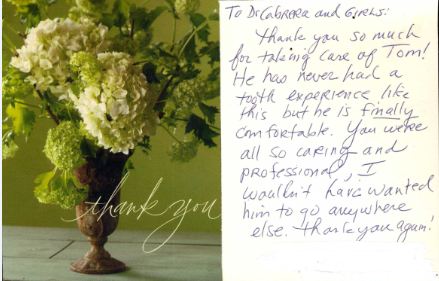 thank you
To Dr Cabrera and GIRLS:
Thank you so much
for taking care of Tom!
He has never had a
tooth experience like
this but he is finally
comfortable. You were
all so caring and
professional, I
wouldn't have wanted
him to go anywhere
else. Thank you again!